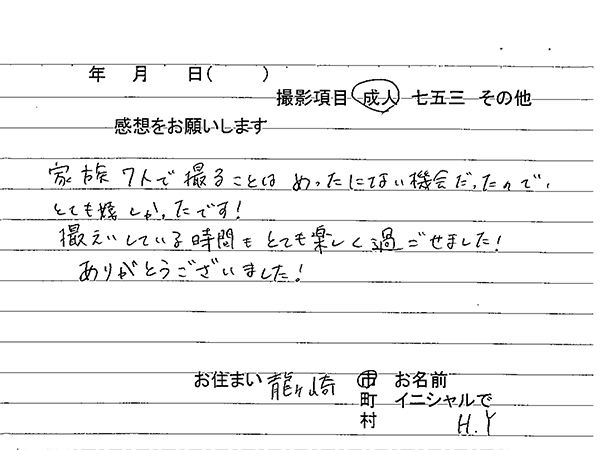 年 月 日( )
撮影項目 成人 七五三 その他
感想をお願いします
家族7人で撮ることはめったにない機会だったので、
とても嬉しかったです!
撮えいしている時間もとても楽しく過ごせました!
ありがとうございました!
お住まい 龍ヶ崎 市 お名前
町 イニシャルで
村 H.Y